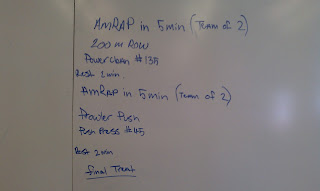 AMRAP in 5 min (Team of 2)
200 m Row
Power Clean #135
Rest 2 min
AMRAP in 5 min (Team of 2)
Prowler Push
Push Press #45
Rest 2 min
final Treat